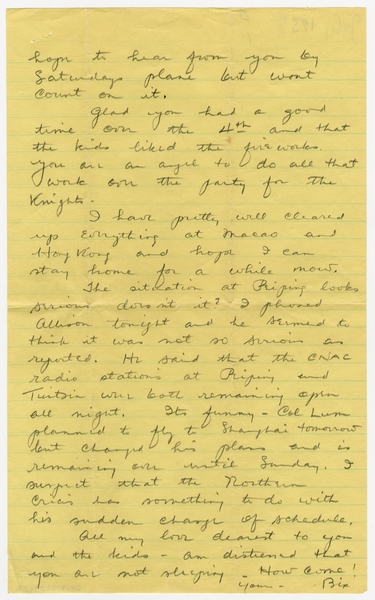 hope to hear from you by
Saturdays plane but wont
count on it.
Glad you had a good
time over the 4th and that
the kids liked the fire works.
You are an angel to do all that
work over the party for the
Knights.
I have pretty well cleared
up everything at Macao and
Hong Kong and hope I can
stay home for a while now.
The situation at Peiping looks
serious doesn't it? I phoned
Allison tonight and he seemed to
think it was not so serious as
reported. He said that the CNAC
radio stations at Peiping and
Tientsin were both remaining open
all night. Its funny - Col Lum
planned to fly to Shanghai tomorrow
but changed his plans and is
remaining over until Sunday. I
suspect that the Northern
Crisis has something to do with
his sudden change of schedule.
All my love dearest to you
and the kids - am distressed that
you are not sleeping - How Come!
Your - Bix